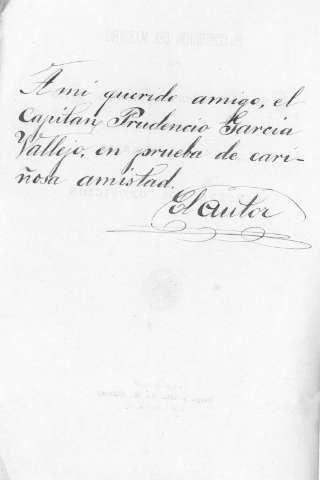 A mi querido amigo, el
Capitan Prudencio Garcia
Vallejo, en prueba de cari-
ñosa amistad.
El autor